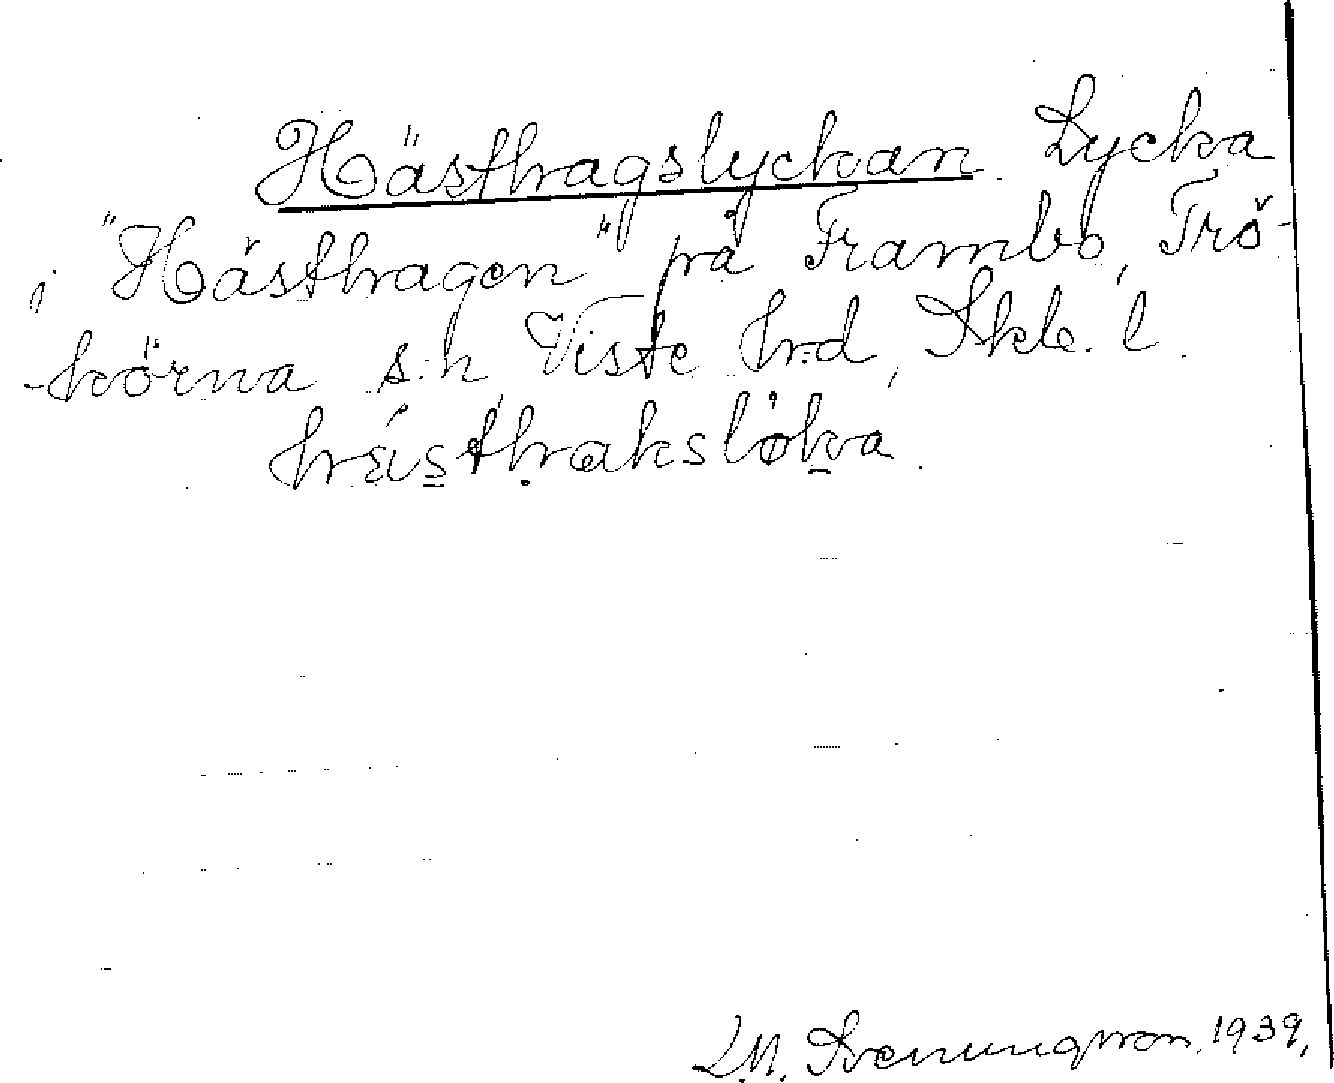 Hästhagslyckan. Lycka
i "Hästhagen" på Frambo, Trö-
-körna s:n, Viste h:d, Skb. l.
hästhaksløka.
L.M. Svenungsson. 1939.